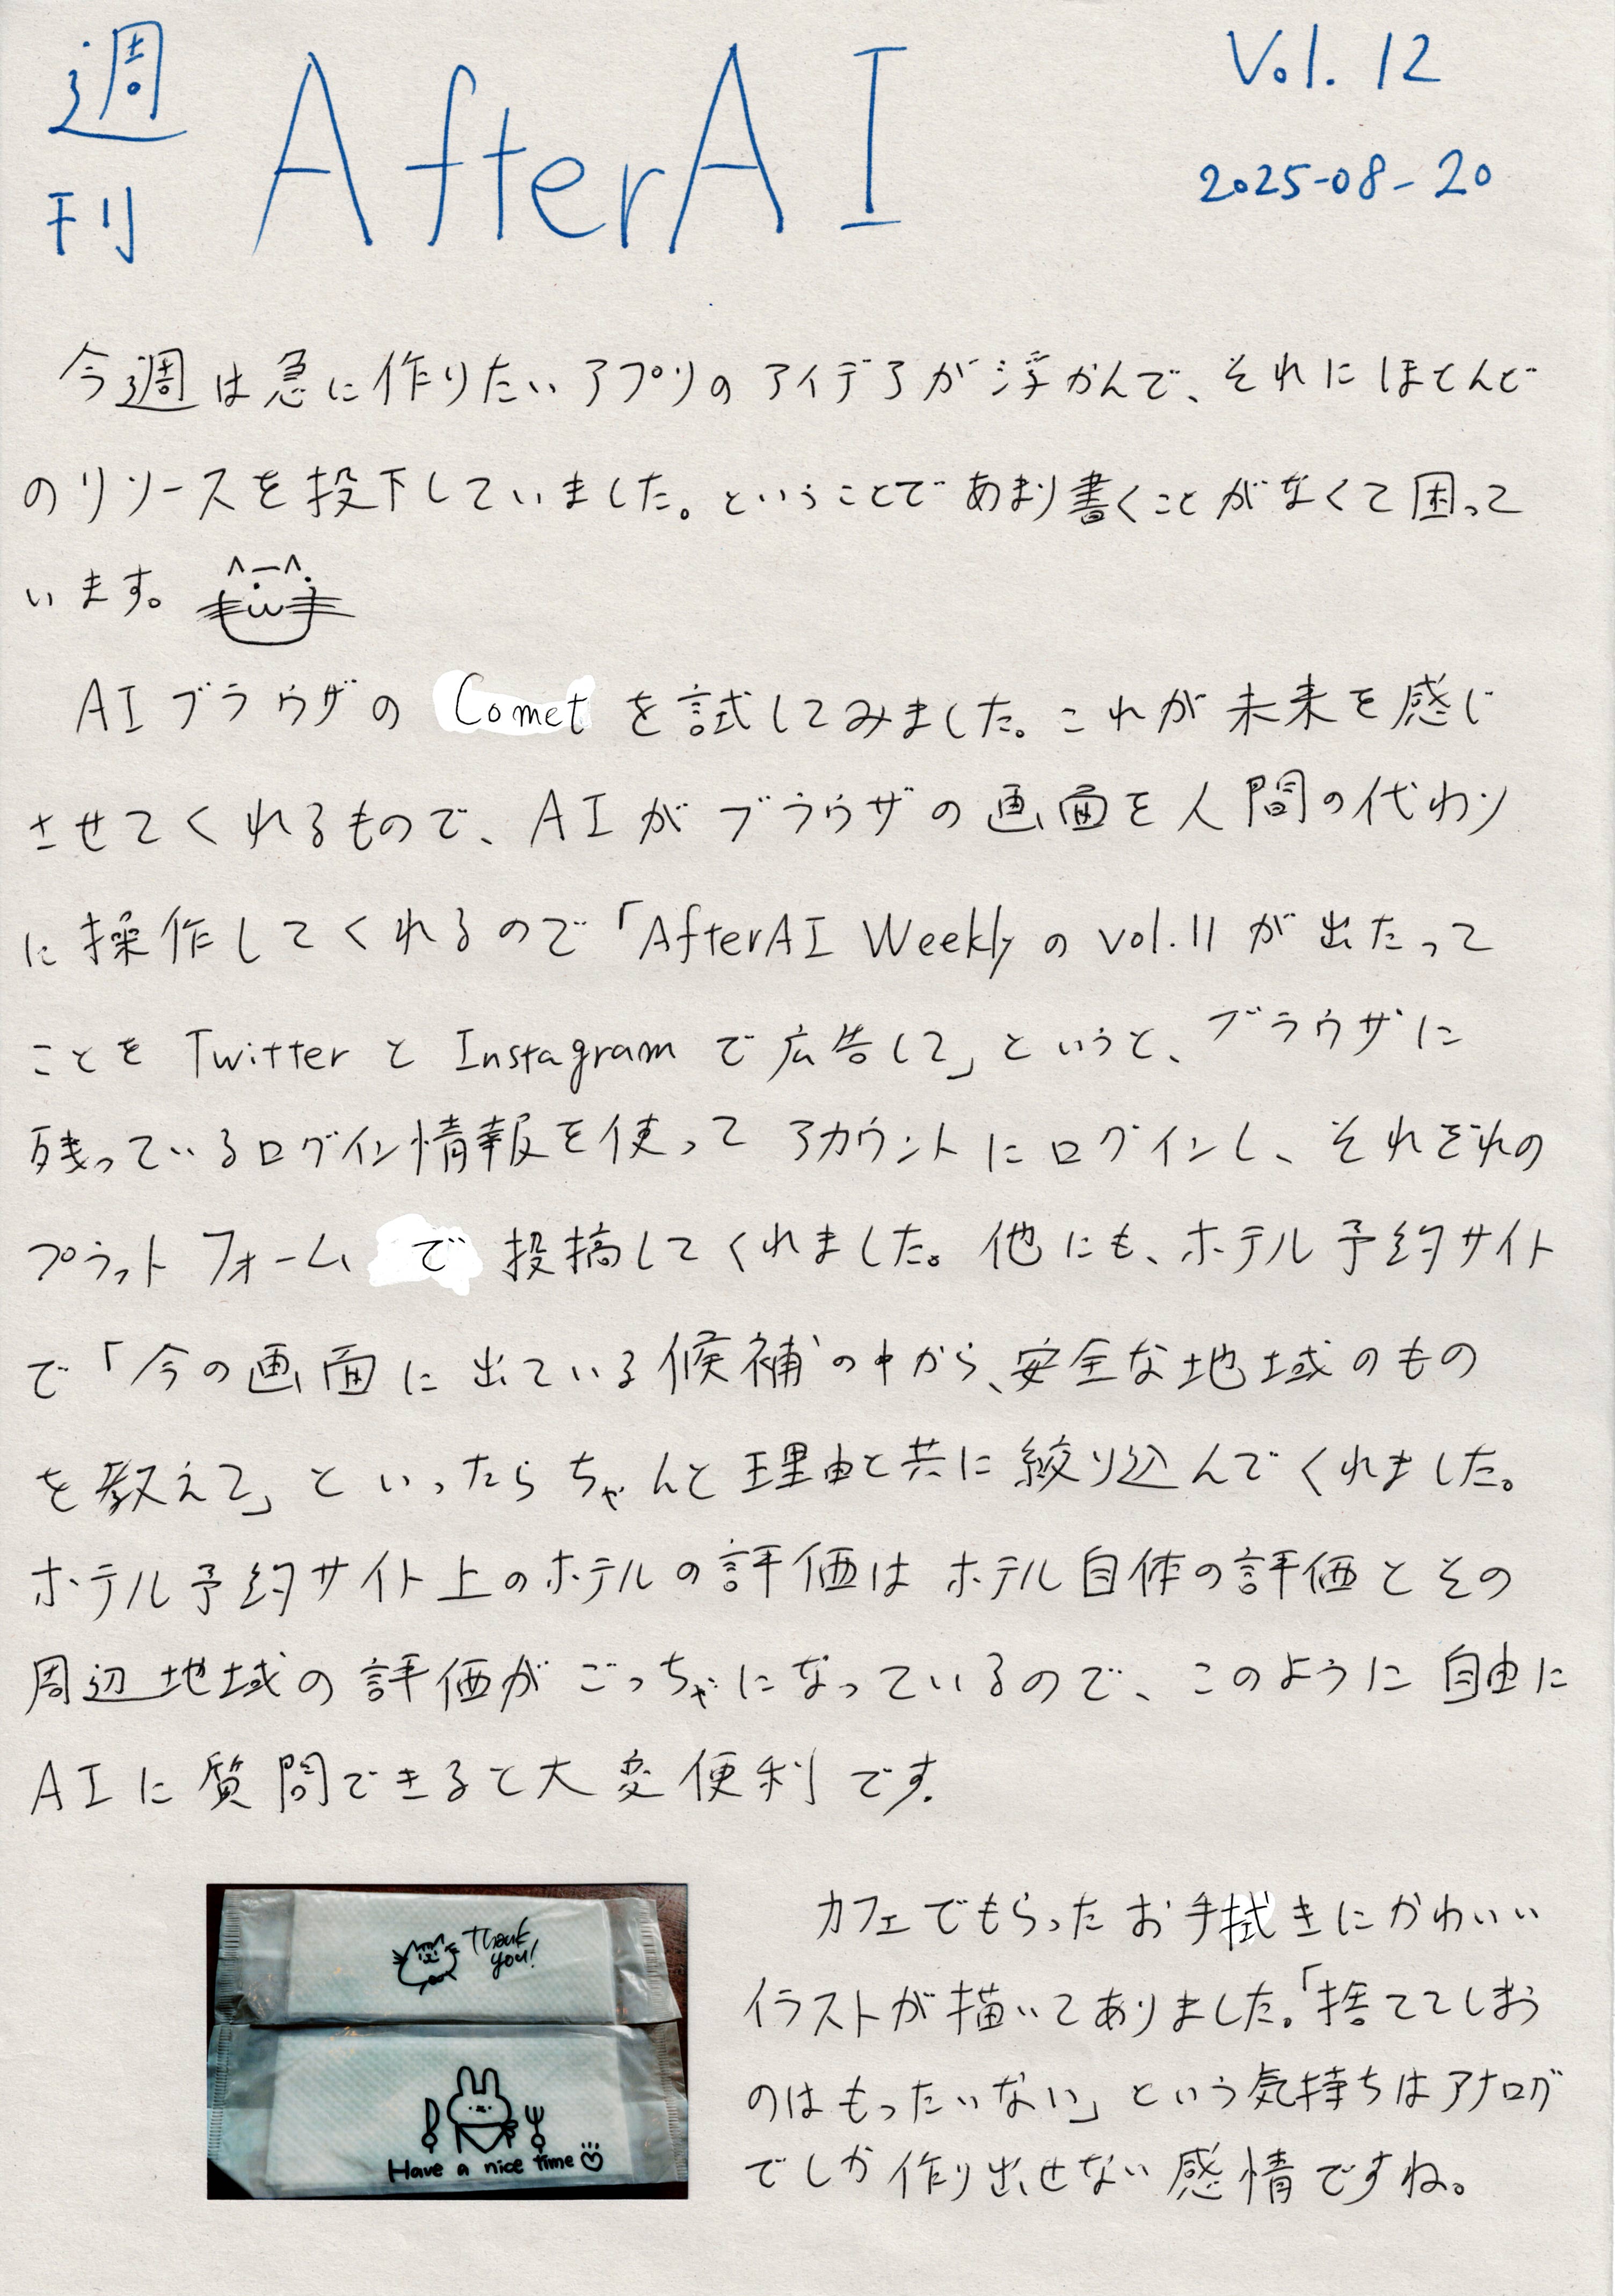 週刊 AfterAI
Vol. 12
2025-08-20
今週は急に作りたいアプリのアイデアが浮かんで、それにほとんど
のリソースを投下していました。ということであまり書くことがなくて困って
います。
AIブラウザの Comet を試してみました。これが未来を感じ
させてくれるもので、AIがブラウザの画面を人間の代わり
に操作してくれるので「AfterAI Weekly の vol.11 が出たって
ことを Twitter と Instagram で広告して」というと、ブラウザに
残っているログイン情報を使ってアカウントにログインし、それぞれの
プラットフォームで投稿してくれました。他にも、ホテル予約サイト
で「今の画面に出ている候補の中から、安全な地域のもの
を教えて」といったらちゃんと理由と共に絞り込んでくれました。
ホテル予約サイト上のホテルの評価はホテル自体の評価とその
周辺地域の評価がごっちゃになっているので、このように自由に
AIに質問できると大変便利です.
Thank
you!
Have a nice time
カフェでもらったお手拭きにかわいい
イラストが描いてありました。「捨ててしまう
のはもったいない」という気持ちはアナログ
でしか作り出せない感情ですね。